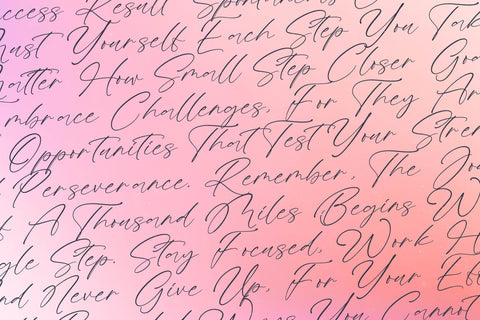 ccess Result Spontaneous
Must Yourself Each Step You Tak
atter How Small Step Closer Goa
mbrace Challenges, For They Ar
Opportunities That Test Your Stren
d Perseverance. Remember, The Jou
f A Thousand Miles Begins W
gle Step. Stay Focused, Work H
nd Never Give Up, For Your Eff
You Cannot